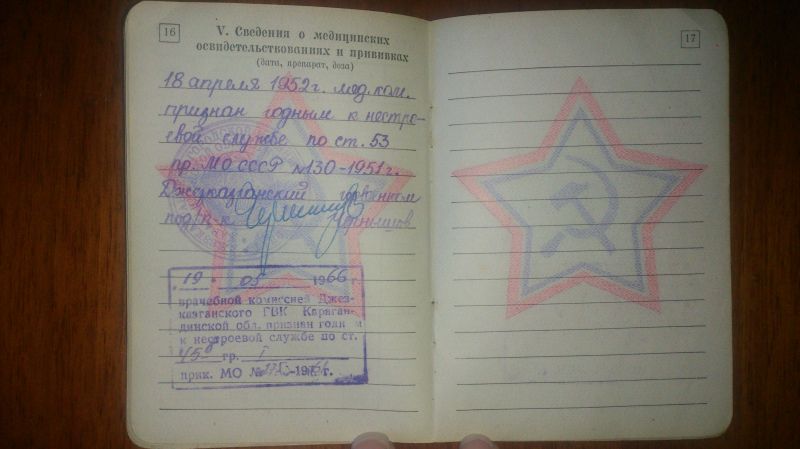 16
V. Сведения о медицинских
освидетельствованиях и прививках
(дата, препарат, доза)
18 апреля 1952г. мед. ком.
признан годным к нестро-
евой службе по ст. 53
пр. МО СССР №130-1951г.
Джезказганский горвоенком
подп-к Чернышов
19 05 1966 г.
врачебной комиссией Джез-
казганского ГВК Караган-
динской обл. признан годн м
к нестроевой службе по ст.
45 гр. I
прик. МО № -196 г.
17